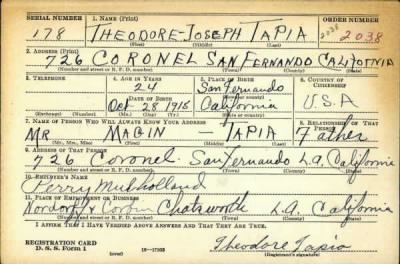 SERIAL NUMBER 1. NAME (Print) ORDER NUMBER
178 THEODORE-JOSEPH TAPIA 2038 2038
(First) (Middle) (Last)
2. ADDRESS (Print)
726 CORONEL SAN FERNANDO CALIFORNIA
(Number and street or R. F. D. number) (Town) (County) (State)
3. TELEPHONE 4. AGE IN YEARS 5. PLACE OF BIRTH 6. COUNTRY OF CITIZENSHIP
24 San Fernando
DATE OF BIRTH (Town or county)
Oct 28 1915 California U.S.A
(Exchange) (Number) (Mo.) (Day) (Yr.) (State or country)
7. NAME OF PERSON WHO WILL ALWAYS KNOW YOUR ADDRESS 8. RELATIONSHIP OF THAT PERSON
MR MAGIN — TAPIA Father
(Mr., Mrs., Miss) (First) (Middle) (Last)
9. ADDRESS OF THAT PERSON
726 Coronel San Fernando L.A. California
(Number and street or R. F. D. number) (Town) (County) (State)
10. EMPLOYER'S NAME
Perry Mulholland
11. PLACE OF EMPLOYMENT OR BUSINESS
Nordorf & Chatsworth L.A. California
(Number and street or R. F. D. number) (Town) (County) (State)
I AFFIRM THAT I HAVE VERIFIED ABOVE ANSWERS AND THAT THEY ARE TRUE.
REGISTRATION CARD
D. S. S. Form 1 16—17105 Theodore Tapia
(Registrant's signature)